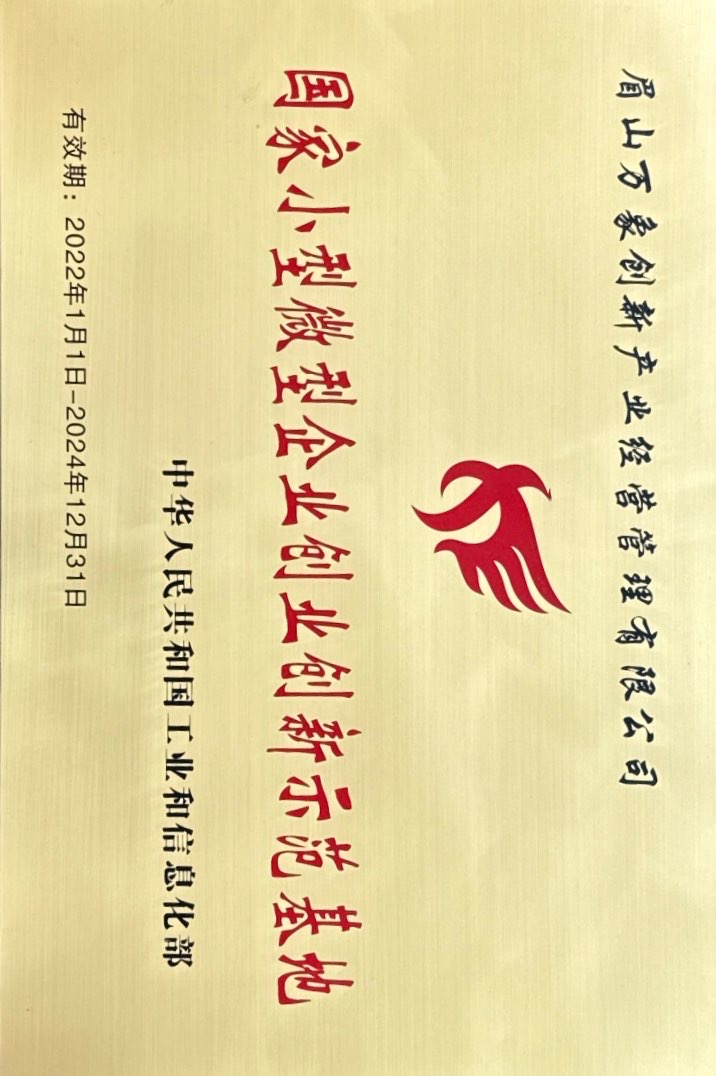 眉山万象创新产业经营管理有限公司
国家小型微型企业创业创新示范基地
中华人民共和国工业和信息化部
有效期：2022年1月1日-2024年12月31日